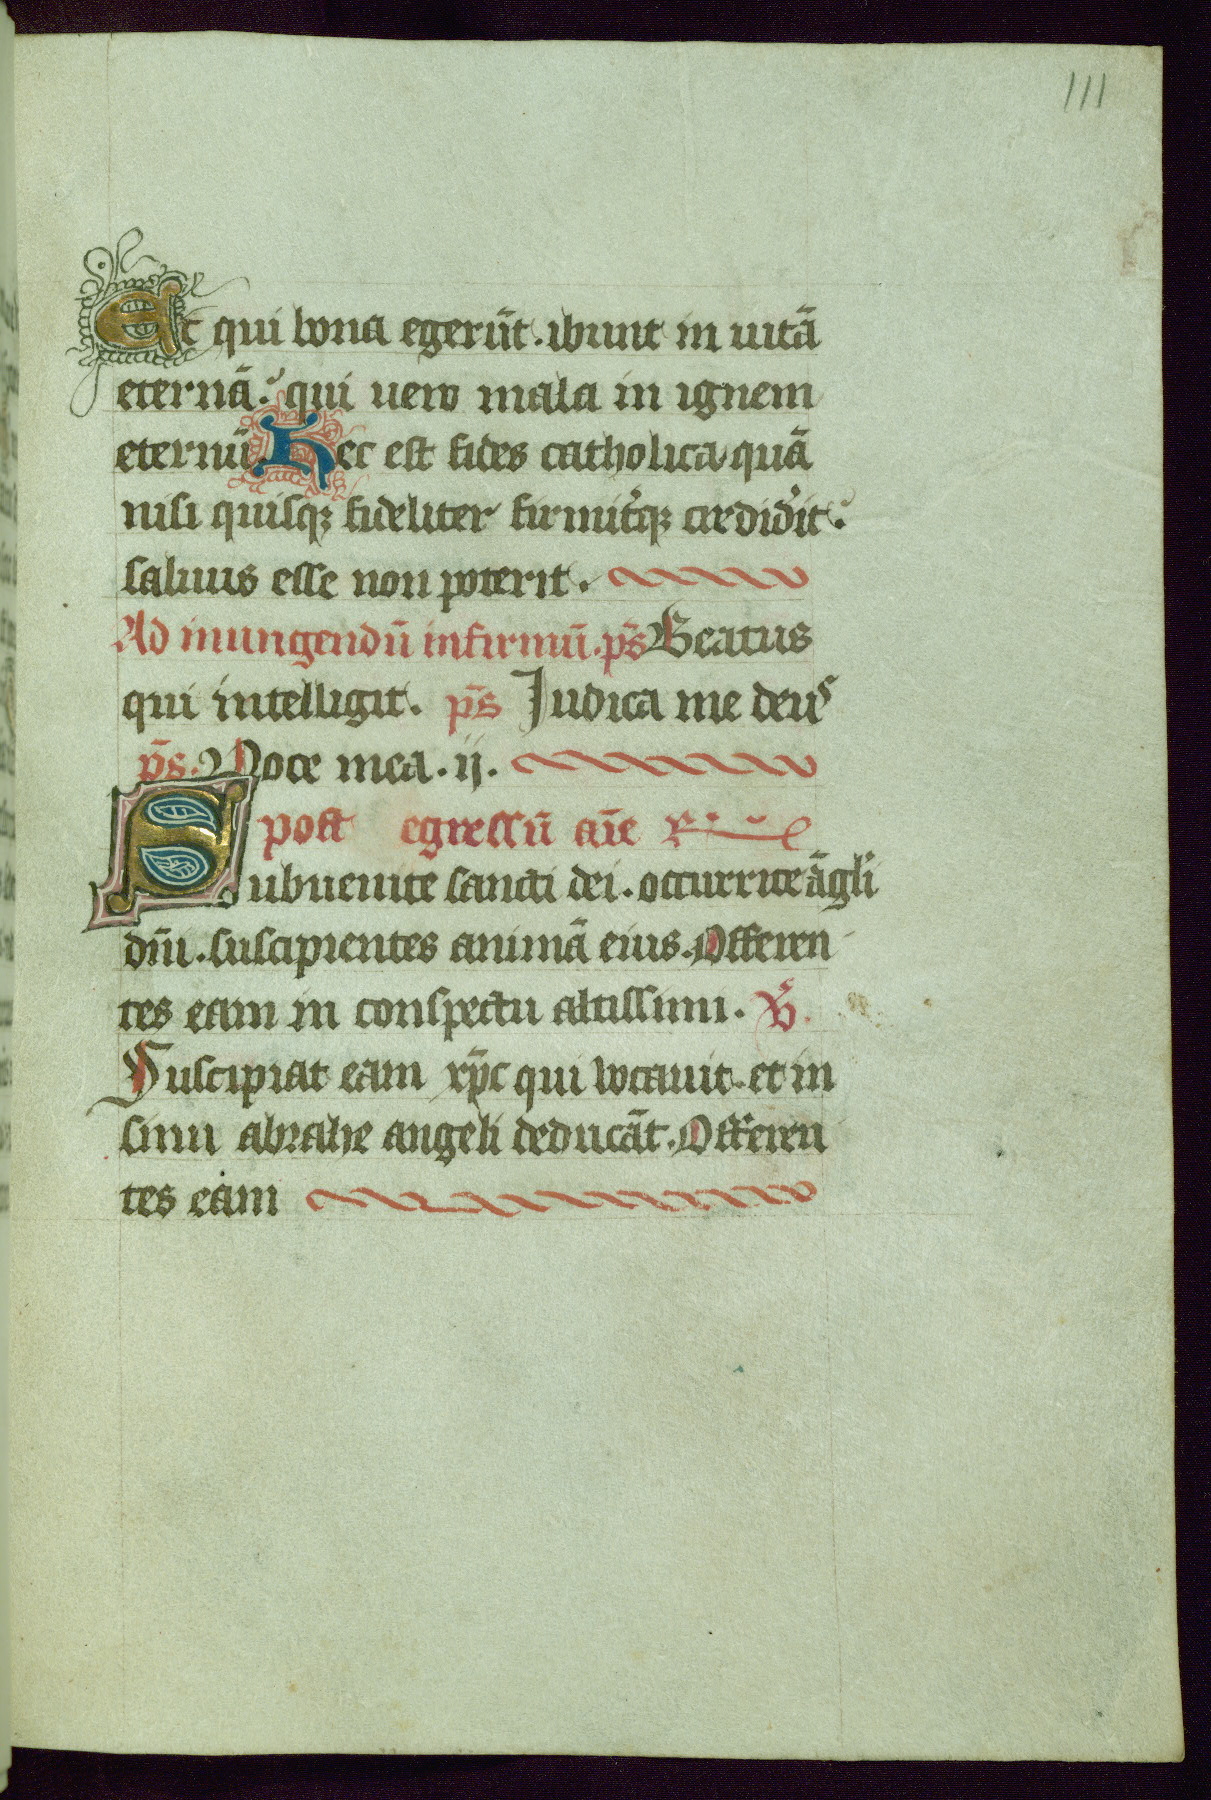 111
Et qui bona egerūt. ibunt in uitā
eternā. qui uero mala in ignem
eternū. Hec est fides catholica quā
nisi quisqꝫ fideliter firmit̾qꝫ credid̾it.
saluus esse non poterit.
Ad inungendū infirmū. p̄s Beatus
qui intelligit. p̄s Iudica me deus
p̄s. Voce mea. ij.
post egressū aīe R
Subuenite sancti dei. occurrite āgli
dn̄i. suscipientes animā eius. Offeren
tes eam in conspectu altissimi. V̾
Suscipiat eam xp̄c qui uocauit. et in
sinu abrahe angeli deducāt. Offeren
tes eam